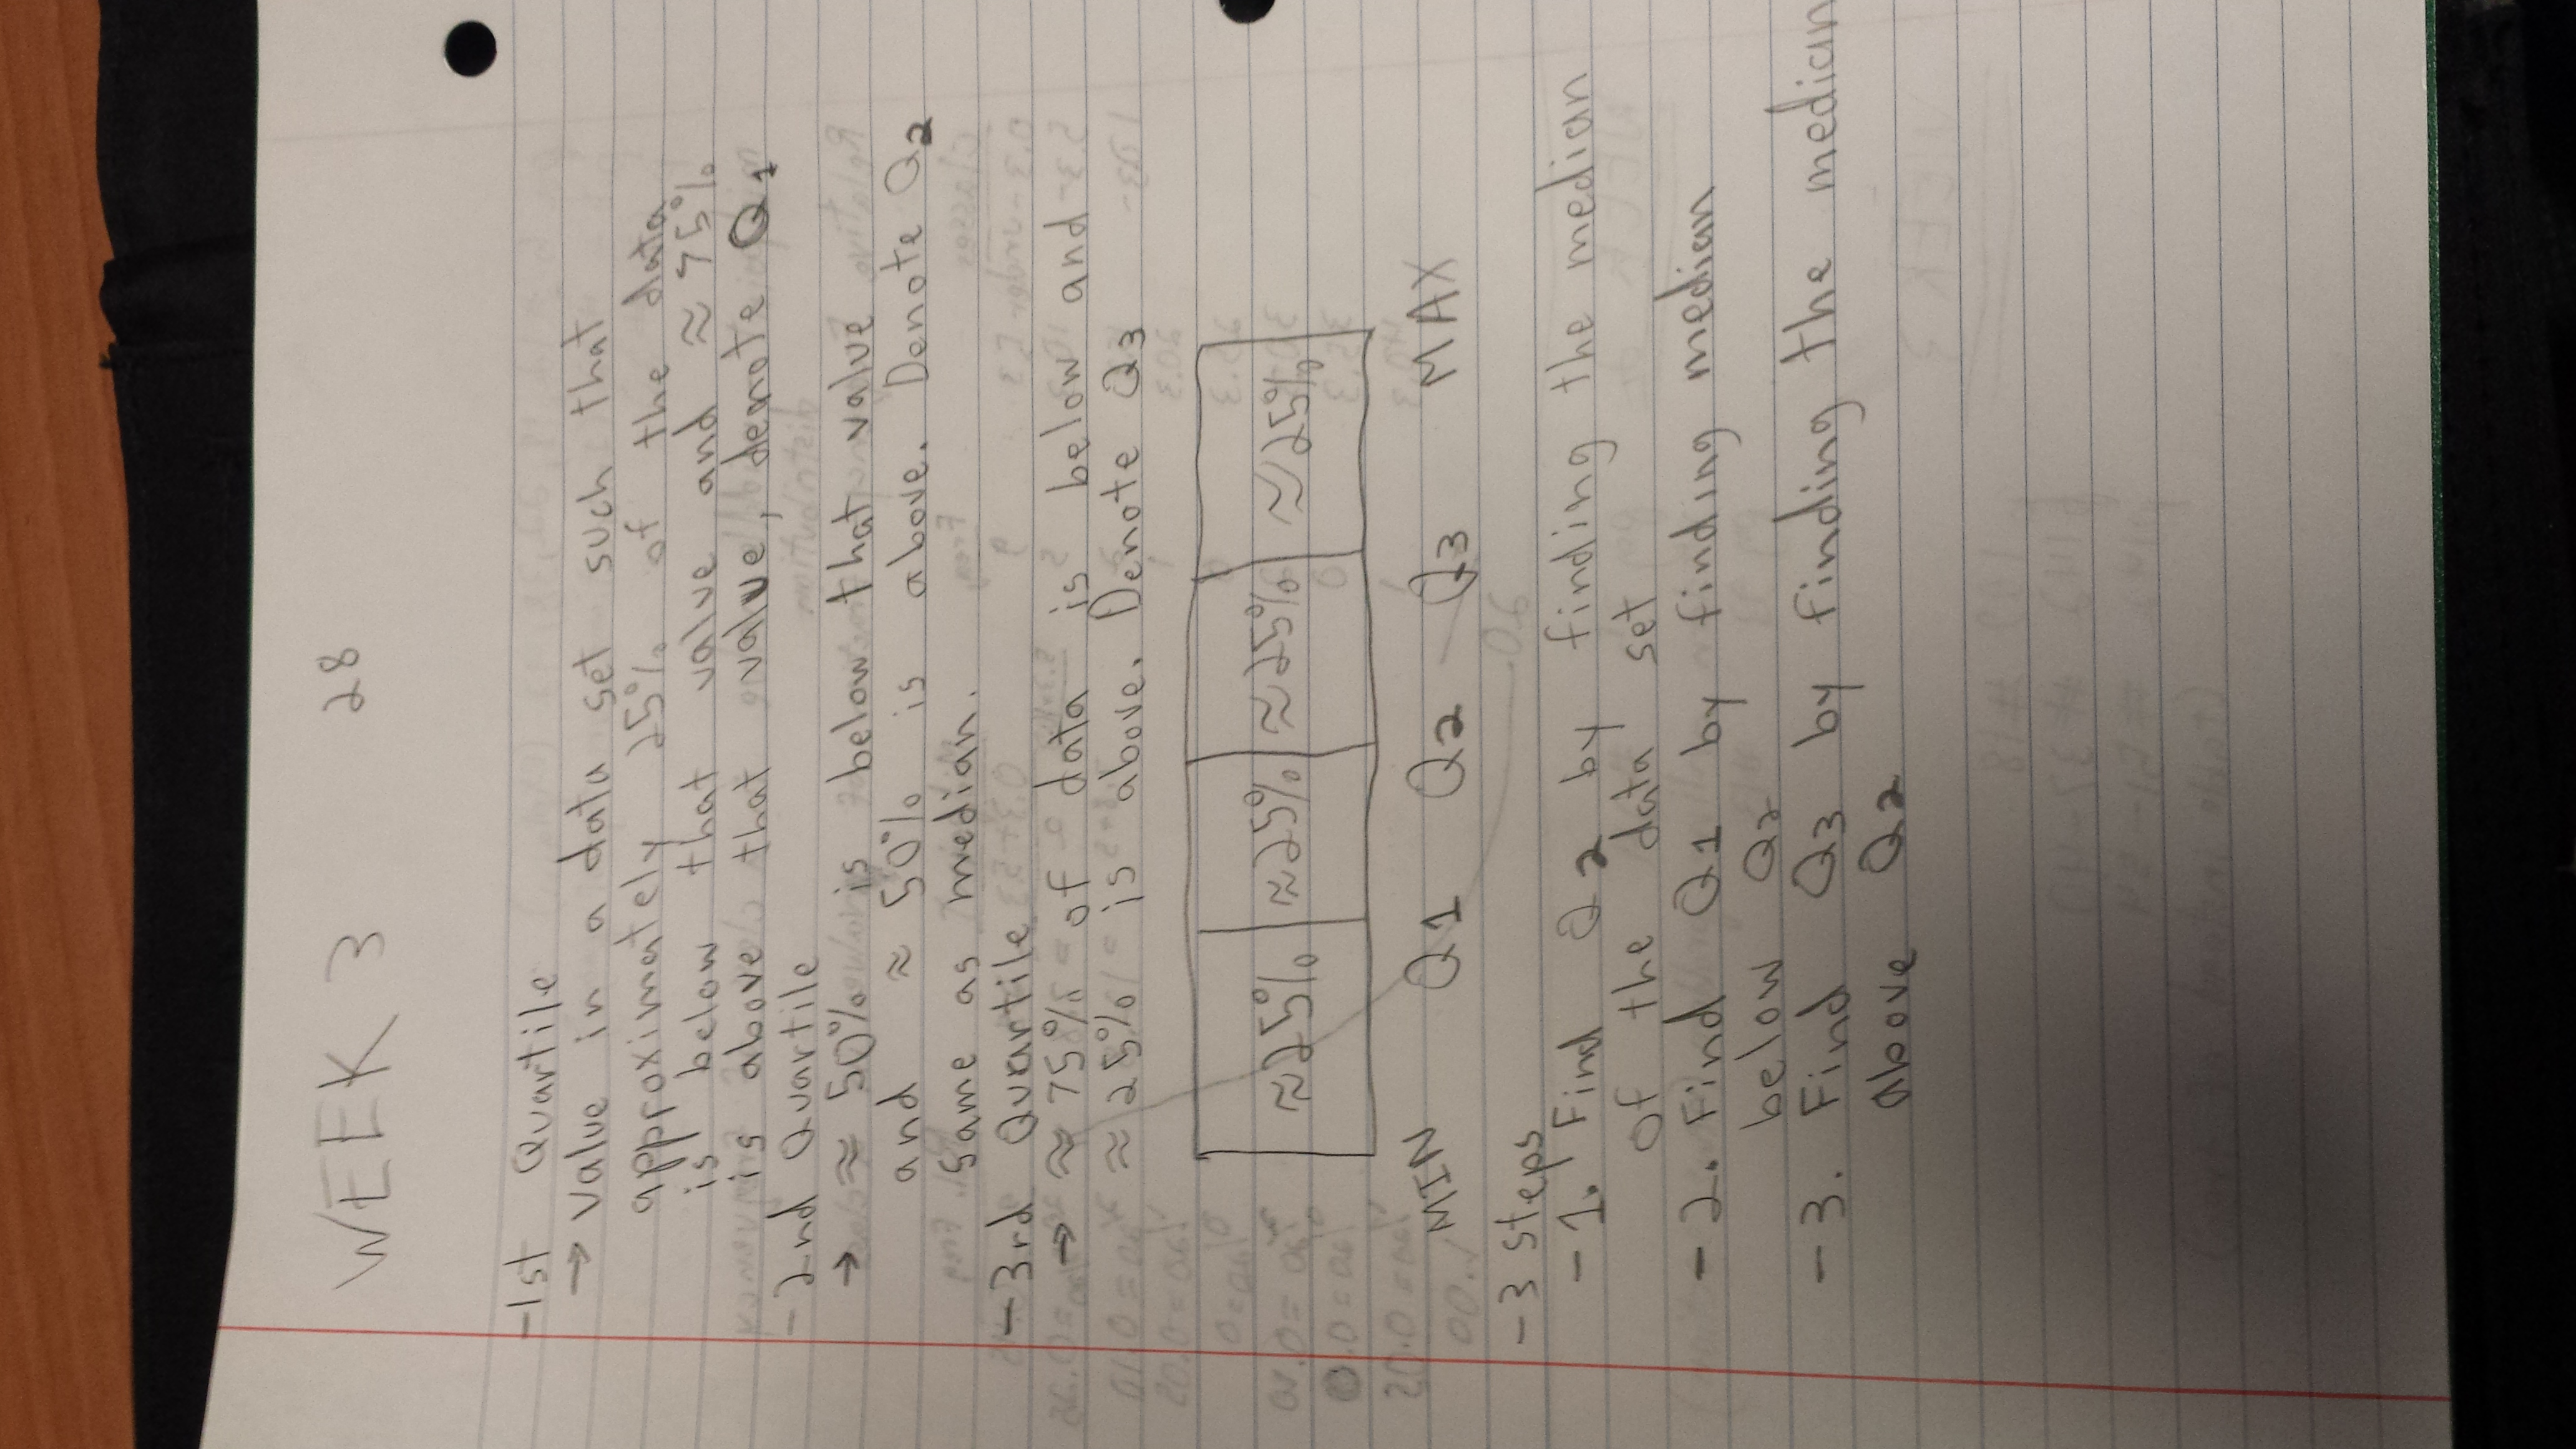 WEEK 3 28
-1st Quartile
→ value in a data set such that
approximately 25% of the data
is below that value and ≈ 75%
is above that value, denote Q1
-2nd Quartile
→ ≈ 50% is below that value
and ≈ 50% is above. Denote Q2
same as median.
-3rd Quartile
→ ≈ 75% of data is below and
≈ 25% is above. Denote Q3
≈25% ≈25% ≈25% ≈25%
MIN Q1 Q2 Q3 MAX
-3 steps
-1. Find Q2 by finding the median
of the data set
-2. Find Q1 by finding median
below Q2
-3. Find Q3 by finding the median
above Q2